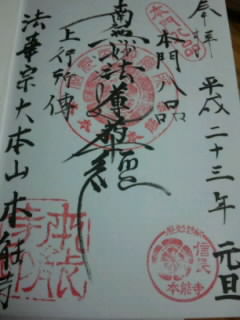 奉拝 平成二十三年 元旦
本門八品
南無妙法蓮華経
上行所傳
法華宗大本山本能寺
信長
本能寺